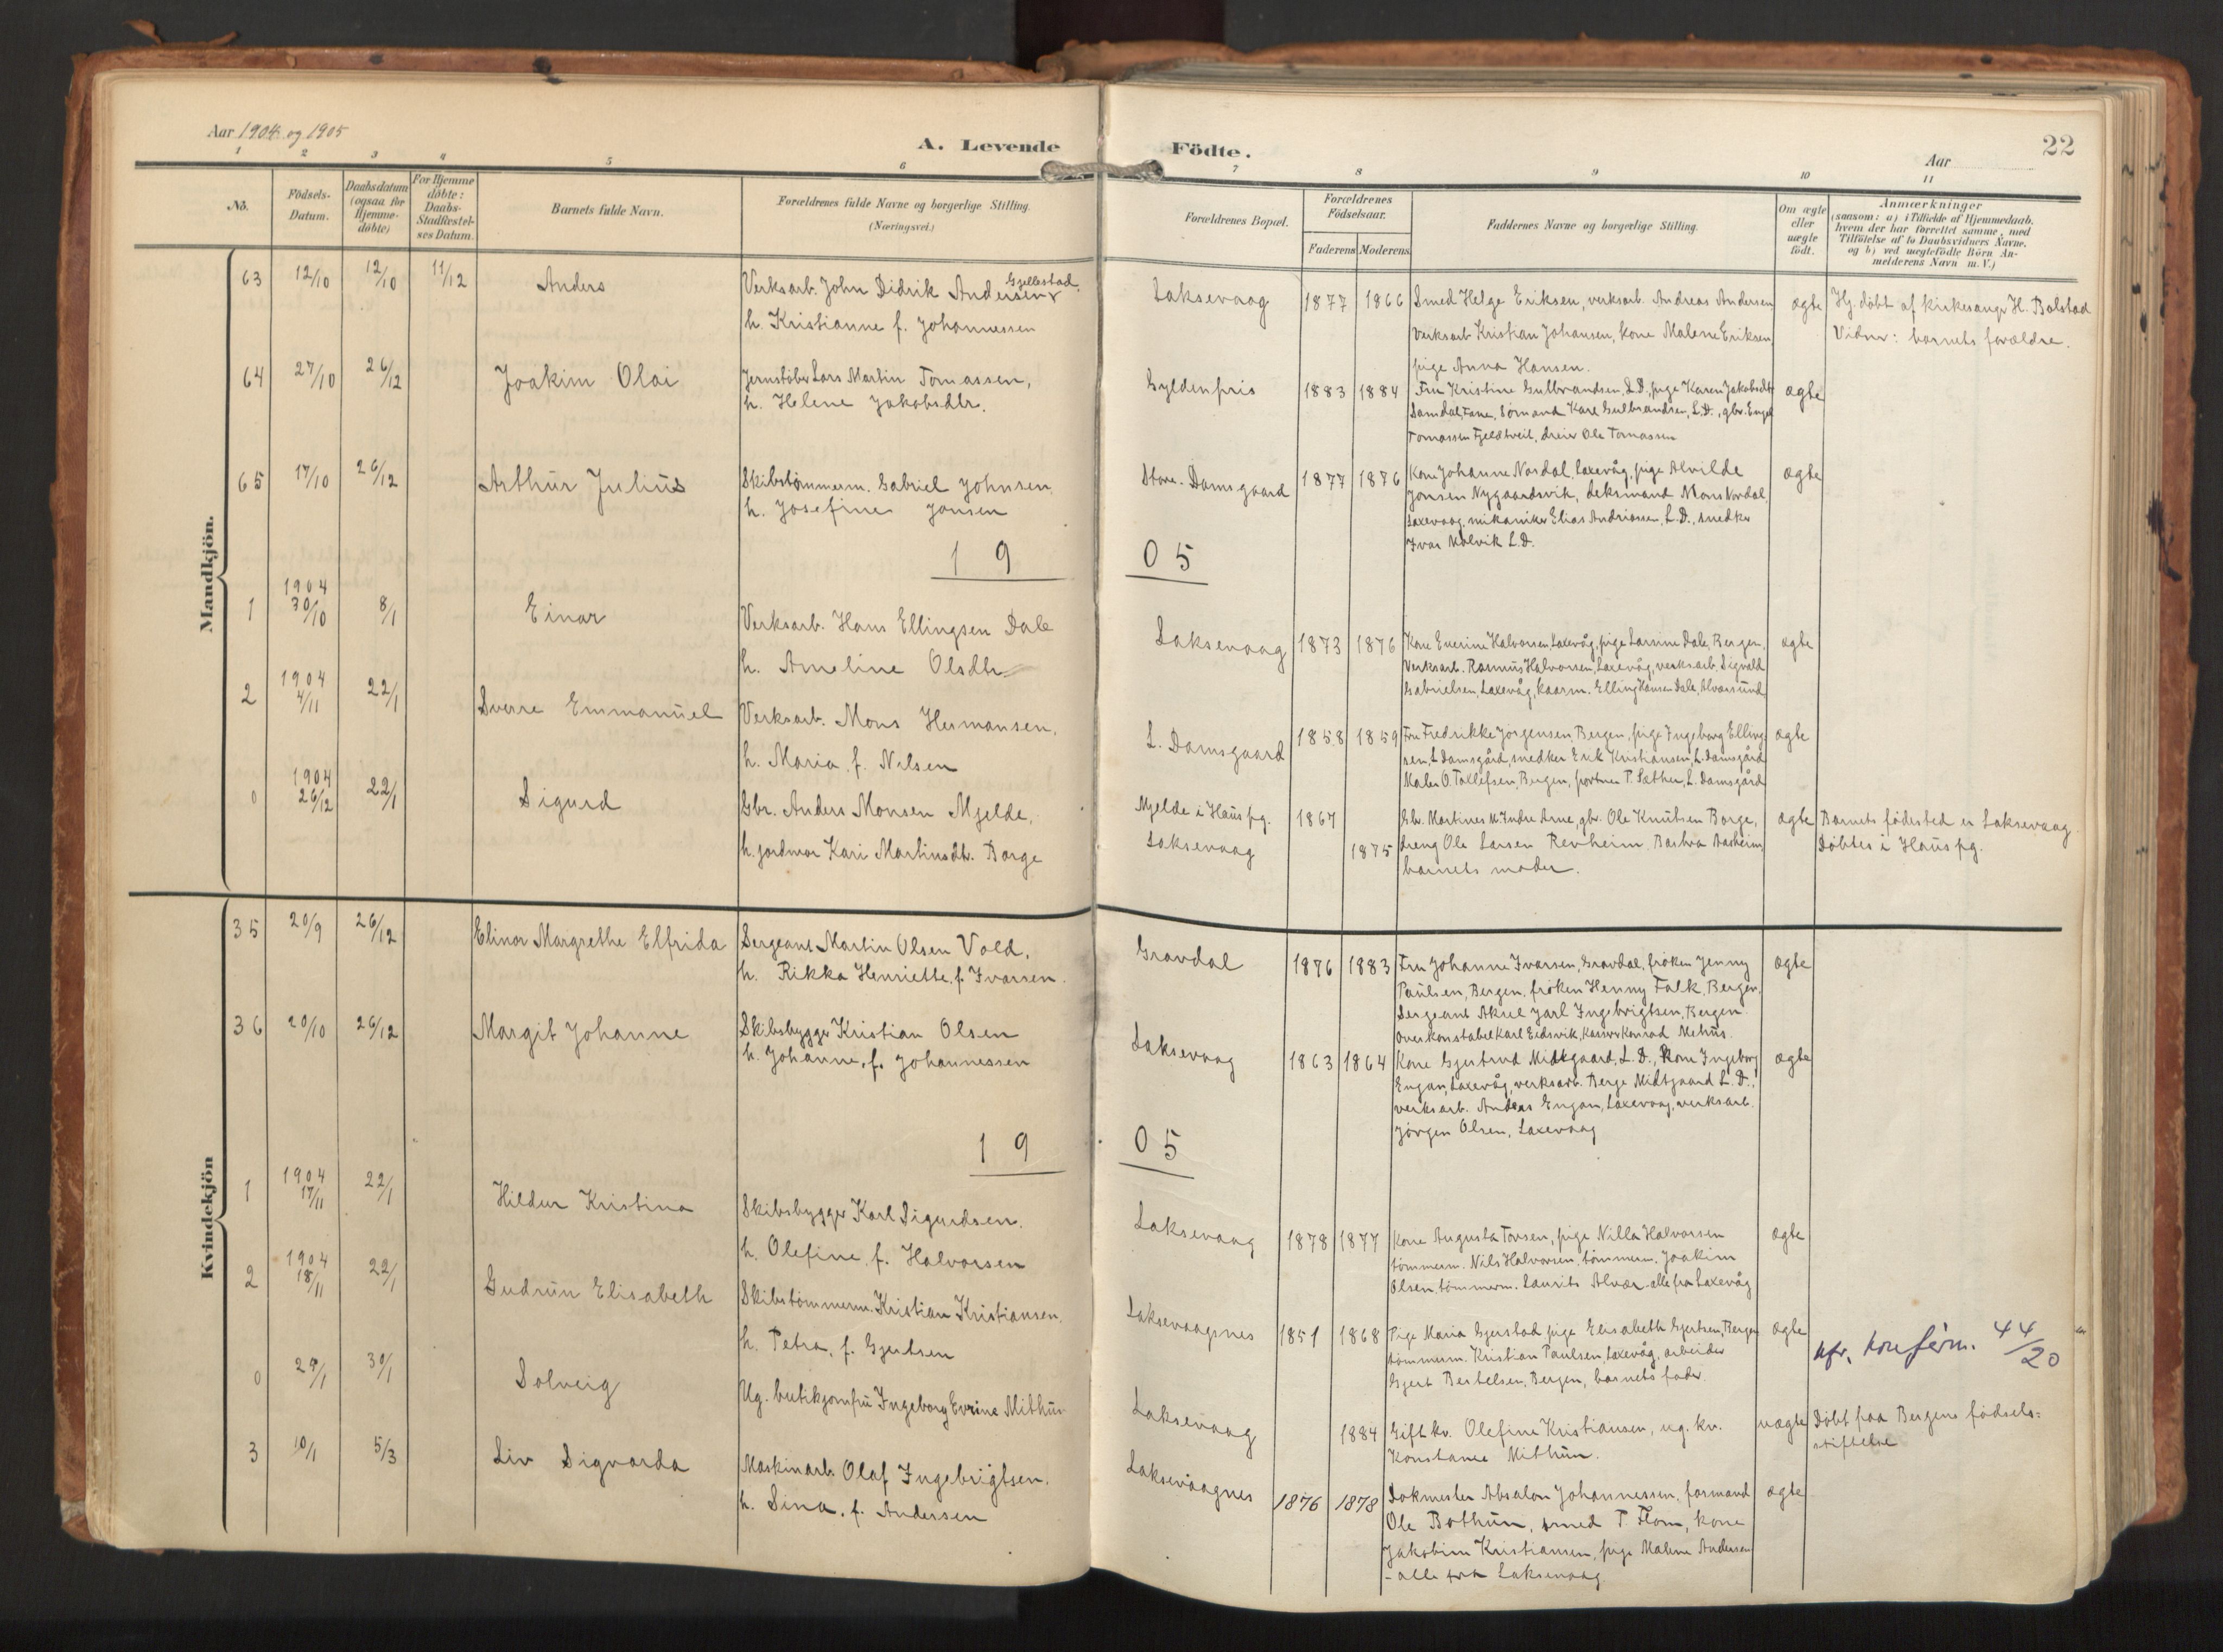 Aar 1904 og 1905
A. Levende Födte.
Aar
22
1 2 3 4 5 6 7 8 9 10 11
No.
Födsels-Datum.
Daabsdatum (ogsaa for Hjemme-döbte)
For Hjemme döbte: Daabs-Stadfæstel-ses Datum.
Barnets fulde Navn.
Forældrenes fulde Navne og borgerlige Stilling.
(Næringsvei.)
Forældrenes Bopæl.
Forældrenes Födselsaar.
Faderens Moderens
Faddernes Navne og borgerlige Stilling.
Om ægte eller uægte födt.
Anmærkninger
(saasom: a) i Tilfælde af Hjemmedaab.
hvem der har forrettet samme, med
Tilföielse af to Daabsvidners Navne.
og b) ved uægtefödte Börn An-
melderens Navn m. V.)
Mandkjön.
63 12/10 12/10 11/12 Anders
Verksarb. John Didrik Andersen Gjellestad,
h. Kristianne f. Johannessen
Laksevaag 1877 1866
Smed Helge Eriksen, verksarb. Andreas Andersen
Verksarb Kristian Johansen, kone Malene Eriksen,
pige Anna Hansen.
ægte
Hj. döbt af kirkesanger H. Bolstad
Vidner: barnets forældre.
64 27/10 26/12 Joakim Olai
Jernstöber Lars Martin Tomassen,
h. Helene Jakobsdtr.
Gyldenpris 1883 1884
Fru Kristine Gulbrandsen, L.D., pige Karen Jakobsdtr
Damdal, Fane, Sömand Karl Gulbrandsen, L.D., gbr. Engel
Tomassen Fjeldtveit, dreier Ole Tomassen
ægte
65 17/10 26/12 Arthur Julius
Skibstömmerm. Gabriel Johnsen,
h. Josefine Jonsen
Store-Damsgaard 1877 1876
Kone Johanne Nordal, Laxevåg, pige Alvilde
Jonsen Nygaardsvik, deksmand Mons Nordal,
Laxevaag, mikaniker Elias Andriassen, L.D., snedker
Ivar Kolvik L.D.
ægte
19 05
1 1904 30/10 8/1 Einar
Verksarb. Hans Ellingsen Dale
h. Ameline Olsdtr.
Laksevaag 1873 1876
Kone Everine Halvorsen, Laxevåg, pige Larsine Dale, Bergen,
Verksarb. Rasmus Halvorsen, Laxevåg, verksarb. Sigvald
Gabrielsen, Laxevåg, kaarm. Elling Hansen Dale, Alversund
ægte
2 1904 4/11 22/1 Sverre Emmanuel
Verksarb. Mons Hermansen,
h. Maria, f. Nilsen
L. Damsgaard 1858 1859
Fru Fredrikke Jörgensen, Bergen, pige Ingeborg Elling-
sen, L. Damsgård, snedker Erik Kristiansen, L. Damsgård
Maler O. Tollefsen, Bergen, portner P. Sæther, L. Damsgård
ægte
0 1904 26/12 22/1 Sigurd
Gbr. Anders Monsen Mjelde,
h. jordmor Kari Martinsdtr. Borge
Mjelde i Haus pg. 1867
Laksevaag 1875
Gbr. Martines M. Indre Arne, gbr. Ole Knutsen Borge,
dreng Ole Larsen Revheim, Barbra Aasheim,
barnets moder.
ægte
Barnets födested er Laksevaag.
Döbtes i Haus pg.
Kvindekjön
35 20/9 26/12 Elinor Margrethe Elfrida
Sergeant Martin Olsen Vold,
h. Rikka Henriette, f. Ivarsen.
Gravdal 1876 1883
Fru Johanne Ivarsen, Gravdal, fröken Jenny
Paulsen, Bergen, fröken Henny Falk, Bergen,
Sergeant Aksel Jarl Ingebrigtsen, Bergen.
Overkonstabel Karl Eidsvik, Konrad Mehus.
ægte
36 20/10 26/12 Margit Johanne
Skibsbygger Kristian Olsen
h. Johanne, f. Johannessen
Laksevaag 1863 1864
Kone Gjertrud Midtgaard, L.D., Kone Ingeborg
Engan, Laxevåg, verksarb. Berge Midtgaard L.D.,
verksarb. Andeas Engan, Laxevaag, verksarb.
Jörgen Olsen, Laxevaag
ægte
19 05
1 1904 17/11 22/1 Hildur Kristina
Skibsbygger Karl Sigurdsen.
h. Olefine f. Halvorsen
Laksevaag 1878 1877
Kone Augusta Tonsen, pige Nilla Halvorsen
tömmerm. Nils Halvorsen, tömmerm. Joakim
Olsen, tömmerm. Laurits Alvær - alle fra Laxevåg
ægte
2 1904 18/11 22/1 Gudrun Elisabeth
Skibstömmerm. Kristian Kristiansen,
h. Petra, f. Gjertsen
Laksevaagsnes 1851 1868
Pige Maria Gjerstad, pige Elisabeth Gjertsen, Bergen
tömmerm. Kristian Paulsen, Laxevåg, arbeider
Gjert Bertelsen, Bergen, barnets fader.
ægte
kfr. konfirm. 44/20
0 29/1 30/1 Solveig
Ug. butikjomfru Ingeborg Evrine Mithun
Laksevaag 1884
Gift kv. Olefine Kristiansen, ug. kv.
Konstance Mithun.
uægte
Döbt paa Bergens födsels-
stiftelse
3 10/1 5/3 Liv Sigvarda
Maskinarb. Olaf Ingebrigtsen,
h. Sina, f. Andersen
Laksevaagnes 1876 1878
Dokmester Absalon Johannessen, formand
Ole Bothun, smed P. Flom, kone
Jakobine Kristiansen, pige Malene Andersen
- alle fra Laksevaag.
ægte